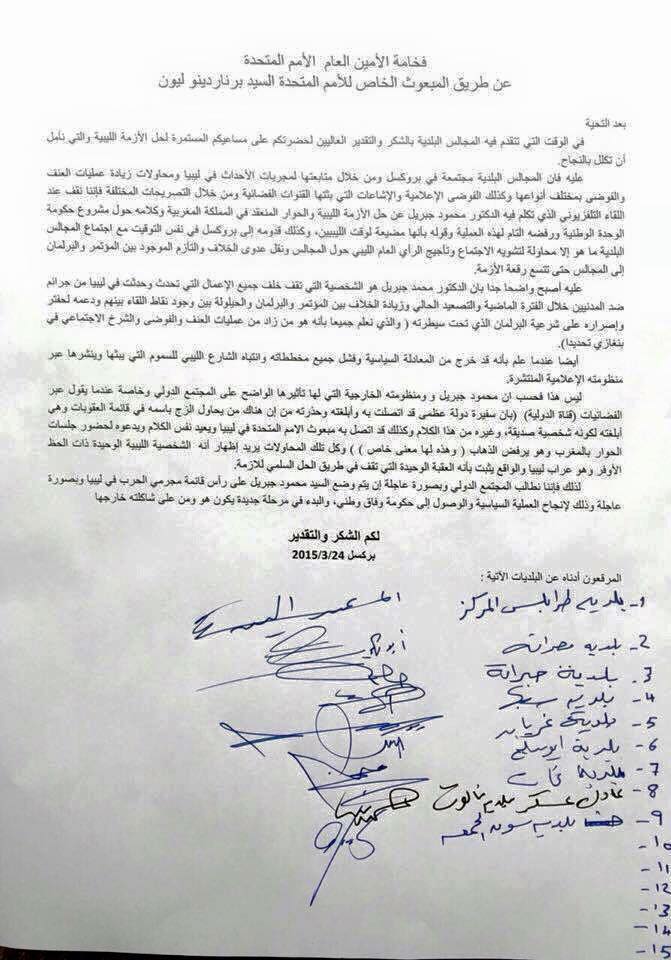 فخامة الأمين العام الأمم المتحدة
عن طريق المبعوث الخاص للأمم المتحدة السيد برناردينو ليون
بعد التحية
في الوقت التي تتقدم فيه المجالس البلدية بالشكر والتقدير العاليين لحضرتكم على مساعيكم المستمرة لحل الأزمة الليبية والتي نأمل
أن تكلل بالنجاح.
عليه فان المجالس البلدية مجتمعة في بروكسل ومن خلال متابعتها لمجريات الأحداث في ليبيا ومحاولات زيادة عمليات العنف
والفوضى بمختلف أنواعها وكذلك الفوضى الإعلامية والإشاعات التي بثتها القنوات الفضائية ومن خلال التصريحات المختلفة فإننا نقف عند
اللقاء التلفزيوني الذي تكلم فيه الدكتور محمود جبريل عن حل الأزمة الليبية والحوار المنعقد في المملكة المغربية وكلامه حول مشروع حكومة
الوحدة الوطنية ورفضه التام لهذه العملية وقوله بأنها مضيعة لوقت الليبيين، وكذلك قدومه إلى بروكسل في نفس التوقيت مع اجتماع المجالس
البلدية ما هو إلا محاولة لتشويه الاجتماع وتأجيج الرأي العام الليبي حول المجالس ونقل عدوى الخلاف والتأزم الموجود بين المؤتمر والبرلمان
إلى المجالس حتى تتسع رقعة الأزمة.
عليه أصبح واضحا جدا بان الدكتور محمد جبريل هو الشخصية التي تقف خلف جميع الإعمال التي تحدث وحدثت في ليبيا من جرائم
ضد المدنيين خلال الفترة الماضية والتصعيد الحالي وزيادة الخلاف بين المؤتمر والبرلمان والحيلولة بين وجود نقاط اللقاء بينهم ودعمه لحفتر
وإصراره على شرعية البرلمان الذي تحت سيطرته ( والذي نعلم جميعا بأنه هو من زاد من عمليات العنف والفوضى والشرخ الاجتماعي في
بنغازي تحديدا).
أيضا عندما علم بأنه قد خرج من المعادلة السياسية وفشل جميع مخططاته وانتباه الشارع الليبي للسموم التي يبثها وينشرها عبر
منظومته الإعلامية المنتشرة.
ليس هذا فحسب ان محمود جبريل و ومنظومته الخارجية التي لها تأثيرها الواضح على المجتمع الدولي وخاصة عندما يقول عبر
الفضائيات (قناة الدولية) (بان سفيرة دولة عظمى قد اتصلت به وأبلغته وحذرته من إن هناك من يحاول الزج باسمه في قائمة العقوبات وهي
أبلغته لكونه شخصية صديقة، وغيره من هذا الكلام وكذلك قد اتصل به مبعوث الامم المتحدة في ليبيا ويعيد نفس الكلام ويدعوه لحضور جلسات
الحوار بالمغرب وهو يرفض الذهاب ( وهذه لها معنى خاص ) ) وكل تلك المحاولات يريد إظهار أنه الشخصية الليبية الوحيدة ذات الحظ
الأوفر وهو عراب ليبيا والواقع يثبت بأنه العقبة الوحيدة التي تقف في طريق الحل السلمي للأزمة.
لذلك فإننا نطالب المجتمع الدولي وبصورة عاجلة إن يتم وضع السيد محمود جبريل على رأس قائمة مجرمي الحرب في ليبيا وبصورة
عاجلة وذلك لإنجاح العملية السياسية والوصول إلى حكومة وفاق وطني، والبدء في مرحلة جديدة يكون هو ومن على شاكلته خارجها
لكم الشكر والتقدير
بركسل 2015/3/24
المرفعون أدناه عن البلديات الآتية :
1- بلدية طرابلس المركز
2- بلدية مصراته
3- بلدية صبراتة
4- بلدية
5- بلدية غريان
6- بلدية ابوسليم
7- بلدية
8- عادل عسكر بلدية نالوت
9- بلدية سوق الجمعه
10-
11-
12-
13-
14-
15-